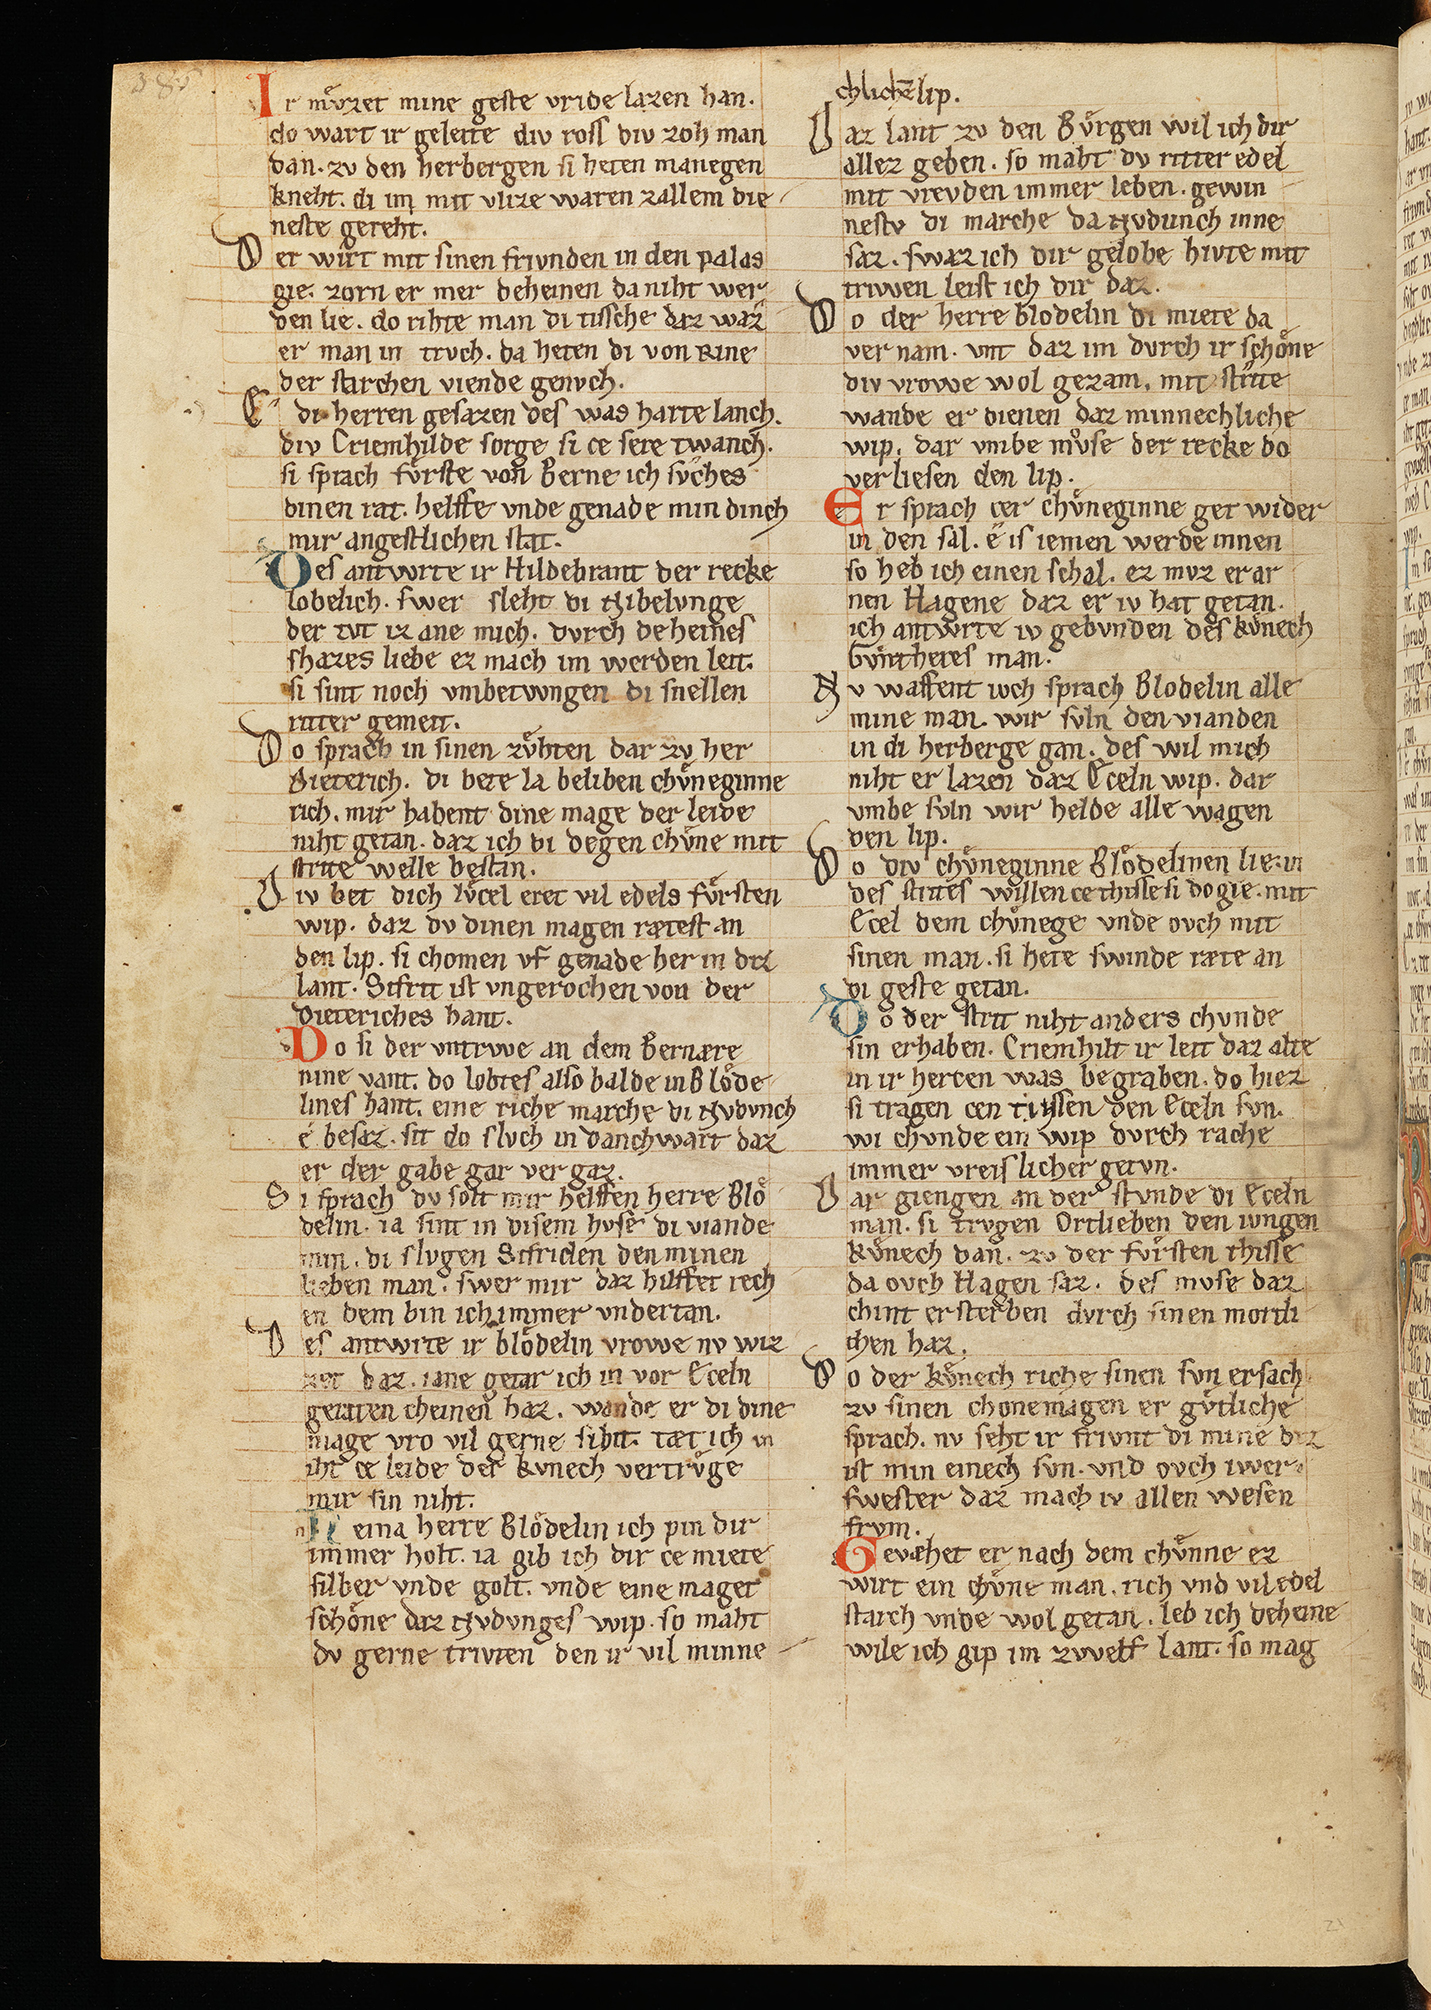 385
Ir mv̊zet mine geste vride lazen han.
do wart ir geleite div ross div zoh man
dan. zv den herbergen si heten manegen
kneht. di im mit vlize waren zallem die
neste gereht.
Der wirt mit sinen frivnden in den palas
gie. zorn er mer deheinen da niht wer
den lie. do rihte man di tissche daz waz
er man in trvch. da heten di von Rine
der starchen viende genvch.
E di herren gesazen des was harte lanch.
div Criemhilde sorge si ce sere twanch.
si sprach fv̊rste von Berne ich sv̊ches
dinen rat. helffe vnde genade min dinch
mir angestlichen stat.
Des antwrte ir Hildebrant der recke
lobelich. swer sleht di Nibelvnge
der tvt iz ane mich. dvrch deheines
shazes liebe ez mach im werden leit.
si sint noch vmbetwngen di snellen
ritter gemeit.
Do sprach in sinen zv̊hten dar zv her
Dieterich. di bete la beliben chv̊neginne
rich. mir habent dine mage der leide
niht getan. daz ich di degen chv̊ne mit
strite welle bestan.
Div bet dich lv̊cel eret vil edels fv̊rsten
wip. daz dv dinen magen rætest an
den lip. si chomen vf genade her in diz
lant. Sifrit ist vngerochen von der
Dieteriches hant.
Do si der vntrwe an dem Bernære
nine vant. do lobtes also balde in Blȯde
lines hant. eine riche marche di Nvdvnch
é besaz. sit do slvch in Danchwart daz
er der gabe gar vergaz.
Si sprach dv solt mir helffen herre Blȯ
delin. ia sint in disem hvse di viande
min. di slvgen Sifriden den minen
lieben man. swer mir daz hilffet rech
en dem bin ich immer vndertan.
Des antwrte ir blȯdelin vrowe nv wiz
zet daz. iane getar ich in vor Eceln
geraten cheinen haz. wande er di dine
mage vro vil gerne siht. tæt ich in
iht ce leide der kvnech vertrv̊ge
mir sin niht.
Neina herre Blȯdelin ich pin dir
immer holt. ia gib ich dir ce miete
silber vnde golt. vnde eine maget
schȯne daz Nvdvnges wip. so maht
dv gerne trivten den ir vil minne
chlichē lip.
Daz lant zv den Bv̊rgen wil ich dir
allez geben. so maht dv ritter edel
mit vrevden immer leben. gewin
nestv di marche da Nvdunch inne
saz. swaz ich dir gelobe hivte mit
triwen leist ich dir daz.
Do der herre Blodelin di miete da
ver nam. vnt daz im dvrch ir schȯne
div vrowe wol gezam. mit strite
wande er dienen daz minnechliche
wip. dar vmbe mv̊se der recke do
verliesen den lip.
Er sprach cer chv̊neginne get wider
in den sal. ê is iemen werde innen
so heb ich einen schal. ez mvz er ar
nen Hagene daz er iv hat getan.
ich antwrte iv gebvnden des kv̊nech
Gvntheres man.
Nv waffent ivch sprach Blodelin alle
mine man. wir svln den vianden
in di herberge gan. des wil mich
niht er lazen daz Eceln wip. dar
vmbe svln wir helde alle wagen
den lip.
Do div chv̊neginne Blȯdelinen lie. in
des strites willen ce thisse si do gie. mit
Ecel dem chv̊nege vnde ovch mit
sinen man. si hete swinde ræte an
di geste getan.
Do der strit niht anders chvnde
sin erhaben. Criemhilt ir leit daz alte
in ir hercen was begraben. do hiez
si tragen cen tissen den Eceln svn.
wi chvnde ein wip dvrch rache
immer vreislicher getvn.
Dar giengen an der stvnde di Eceln
man. si trvgen Ortlieben den ivngen
kv̊nech dan. zv der fv̊rsten thisse
da ovch Hagen saz. des mvse daz
chint ersterben dvrch sinen mortli
chen haz.
Do der kv̊nech riche sinen svn ersach
zv sinen chonemagen er gv̊tliche
sprach. nv seht ir frivnt di mine diz
ist min einech svn. vnd ovch iwer
swester daz mach iv allen wesen
frvm.
Gevæhet er nach dem chv̊nne ez
wirt ein chv̊ne man. rich vnd vil edel
starch vnde wol getan. leb ich deheine
wile ich gip im zwelf lant. so mag
21